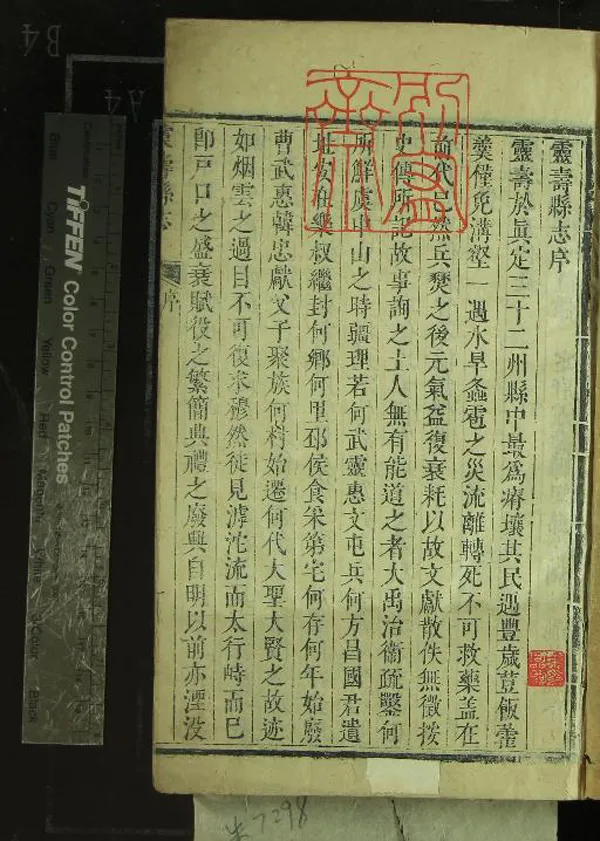 靈壽縣志序
靈壽於真定三十二州縣中最為瘠壤其民遇豐歲荳飯藿
羹僅免溝壑一遇水旱螽雹之災流離轉死不可救藥蓋在
前代已然兵燹之後元氣益復衰耗以故文獻散佚無徵按
史傳所記故事詢之土人無有能道之者大禹治衞疏鑿何
所鮮虞中山之時疆理若何武靈惠文屯兵何方昌國君遺
址安在樂叔繼封何鄉何里邳侯食采第宅何存何年始廢
曹武惠韓忠獻父子聚族何村始遷何代大聖大賢之故迹
如烟雲之過目不可復求穆然徒見滹沱流而太行峙而已
即戶口之盛衰賦役之繁簡典禮之廢興自明以前亦湮没
靈壽縣志
序
TIFFEN Color Control Patches
Blue
Cyan
Green
Yellow
Red
Magenta
White
3-Color
Black
B4
A4
7298